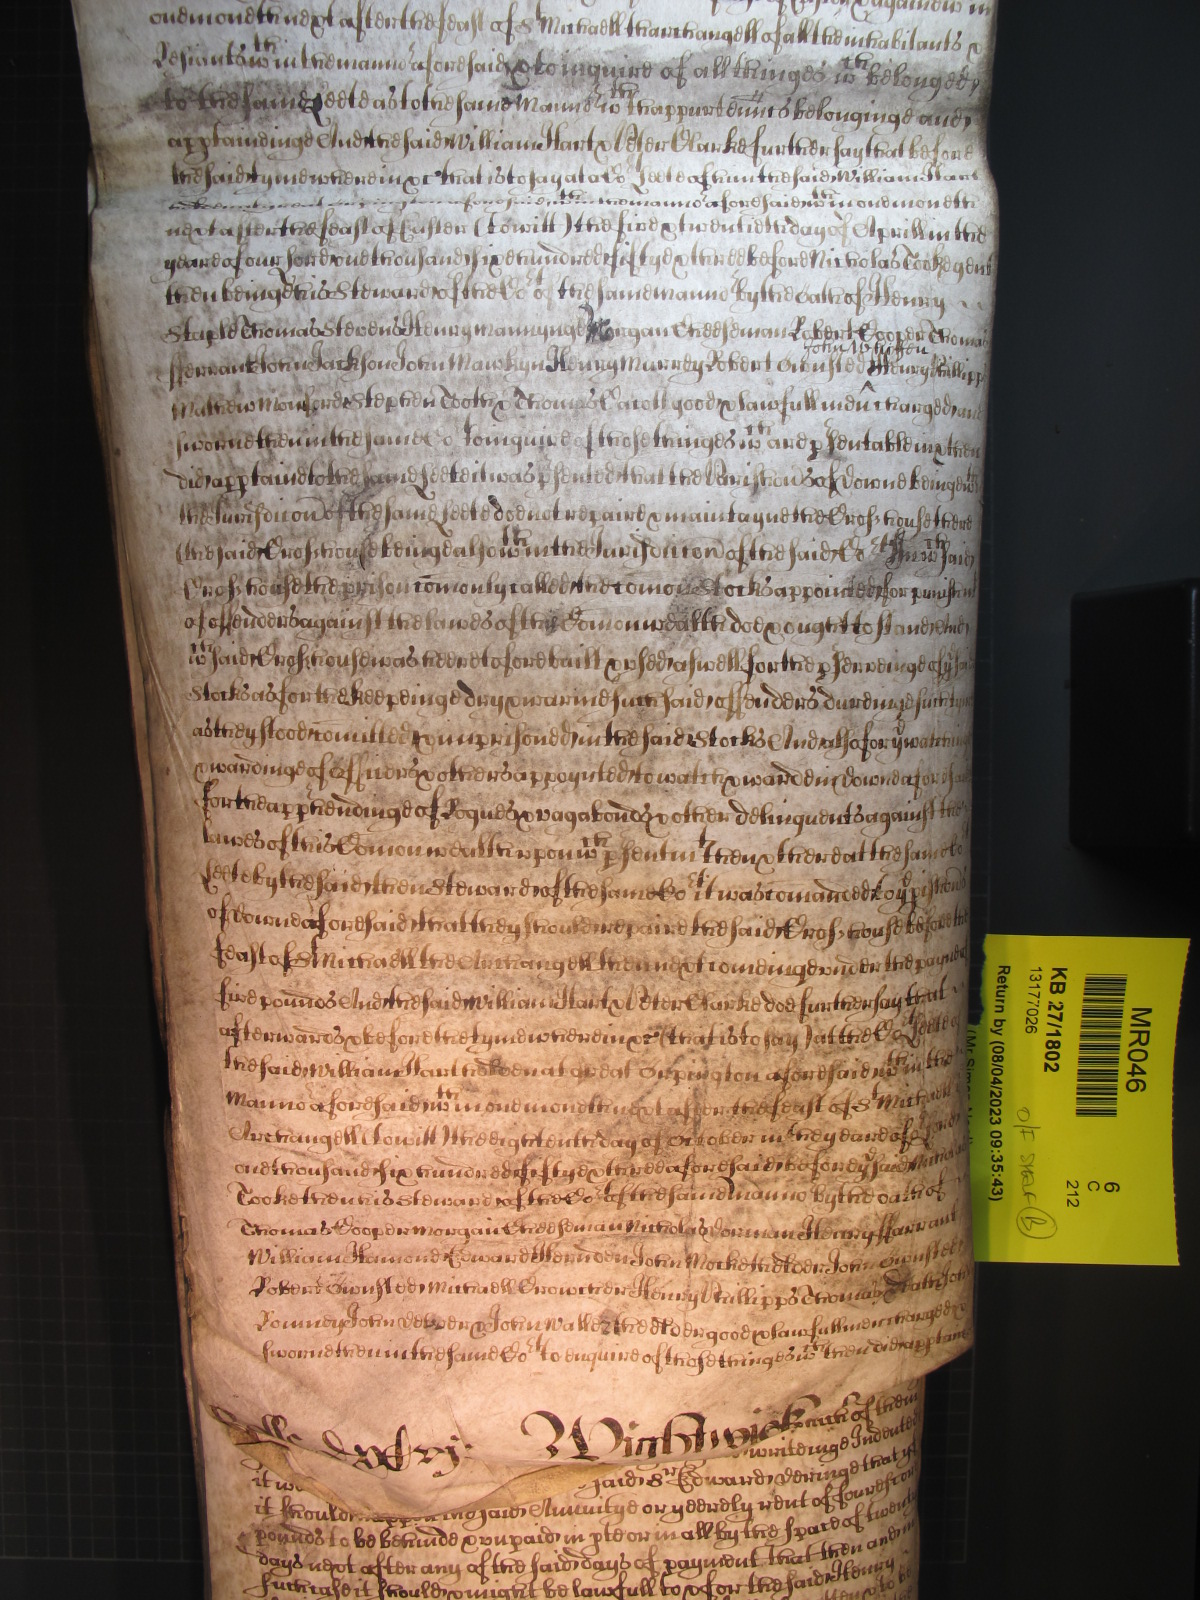 one moneth next after the feast of St Michaell tharchangell of all the inhabitants &
Resiants wth in the mannor aforesaid & to inquire of all thinges wch belonged
to the same Leete as to the same Mannor wth thappurtennts belonginge and
appertaindinge And the said William Hart & Peter Clarke further say that before
the said tyme wherein &c that is to say at a Cort Leete of him the said William Hart
in the mannor aforesaid wth in one moneth
next after the feast of Easter (to witt) the five & twentieth day of Aprill in the
yeare of our Lord one thousand sixe hundred fiftye & three before Nicholas Cooke gent
then beinge his Steward of the Cort of the same mannor by the oath of Henry
Staple Thomas Stevens Henry Mannynge Morgan Cheeseman Robert Cooper Thomas
John Whiffen
fferrant John Jackson John Mawkyn Henry Murrey Robert Ownsted Henry Phillipps
Mathew Monford Stephen Cooty & Thomas Caroll good & lawfull men charged and
sworne then in the same Cort to inquire of those thinges wch are psentable & then
did appertaine to the same Leete it was psented that the Parishions of Downe beinge wth in
the Jurisdiccon of the same Leete doe not repaire & maintayne the Crosshouse there
(the said Crosshouse beinge also wth in the Jurisdiccon of the said Cort) In wch said
Crosshouse the prison comonly called the comon Stocks appointed for punishmt
of offenders against the lawes of this Comonwealth doe & ought to stand And
wch said Crosshouse was heretofore built & used aswell for the pserveinge of ye said
Stocks as for the keepeinge dry & warme such said offenders dureinge such tyme
as they stood comitted & imprisoned in the said Stocks And also for ye watchinge
& wardinge of officers & others appoynted to watch & ward in Downe aforesaid
for the apprhendinge of Rogues & vagabonds & other delinquents against the
lawes of this Comonwealth upon wch psentmt then & there at the same Cort
Leete by the said then Steward of the same Cort it was comanded to ye pishions
of Downe aforesaid that they should repaire the said Crosshouse before the
feast of St Michaell the Archangell then next comeinge under the payne of
five pounds And the said William Hart & Peter Clarke doe further say that
afterwards & before the tyme wherein &c (that is to say) at the Cort Leete of
the said William Hart holden at great Orpington aforesaid wth in the
mannor aforesaid wth in one moneth next after the feast of St Michaell the
Archangell (to witt) the eighteenth day of October in the yeare of our Lord
one thousand sixe hundred fiftye & three aforesaid before ye said Nicholas
Cooke then his Steward of the Cort of the same mannor by the oath of
Thomas Cooper Morgan Cheeseman Nicholas Dorman Henry fferrant
William Hamond Edward Hernden John Mocke the elder John Ownsted
Robert Ownsted Michaell Crowcher Henry Phillipps Thomas
Romney John & John Waller the elder good & lawfull men charged &
sworne then in the same Cort to enquire of those thinges wch then did appertaine
Wightwick
of them
writeinge Indented
said Sr Edward Deringe that yf
it should said Annuitye or yeerely rent of fourescore
pounds to be behinde & unpaid in pte or in all by the space of twenty
dayes next after any of the said dayes of payment that then and in
such case it should & might be lawfull to & for the said Henry
MR046
KB 27/1802
13177026
Return by (08/04/2023 09:35:43)
6
C
212
O/F Shelf B